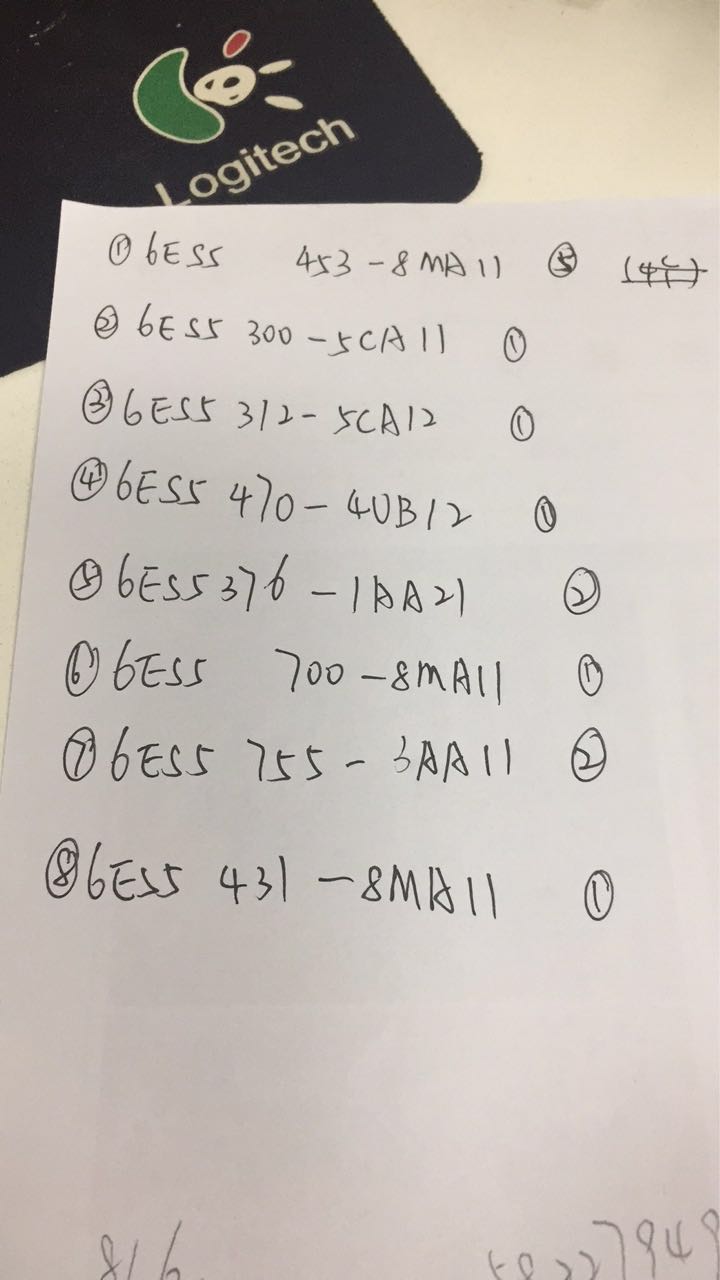 Logitech
① 6ES5 453-8MA11 ⑤
② 6ES5 300-5CA11 ①
③ 6ES5 312-5CA12 ①
④ 6ES5 470-4UB12 ①
⑤ 6ES5 376-1AA21 ②
⑥ 6ES5 700-8MA11 ①
⑦ 6ES5 755-3AA11 ②
⑧ 6ES5 431-8MA11 ①
816